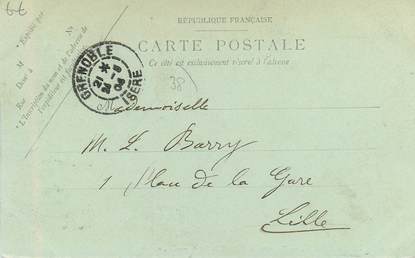 6€
RÉPUBLIQUE FRANÇAISE
CARTE POSTALE
Ce côté est exclusivement réservé à l'adresse
No
Expédié par
M
Demt à
Rue
L'inscription du nom et de l'adresse de
l'expéditeur est facultative
GRENOBLE
21 *
04
ISERE
38
Mademoiselle
M. L. Barry
1 Place de la Gare
Lille